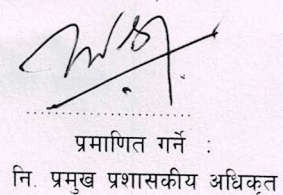 प्रमाणित गर्ने :
नि. प्रमुख प्रशासकीय अधिकृत